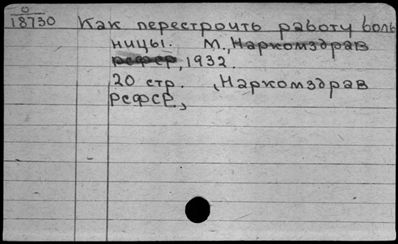 О
18730 Как перестроить работу боль
ницы. М., Наркомздрав
РСФСР, 1932.
20 стр. , Наркомздрав
РСФСР.,